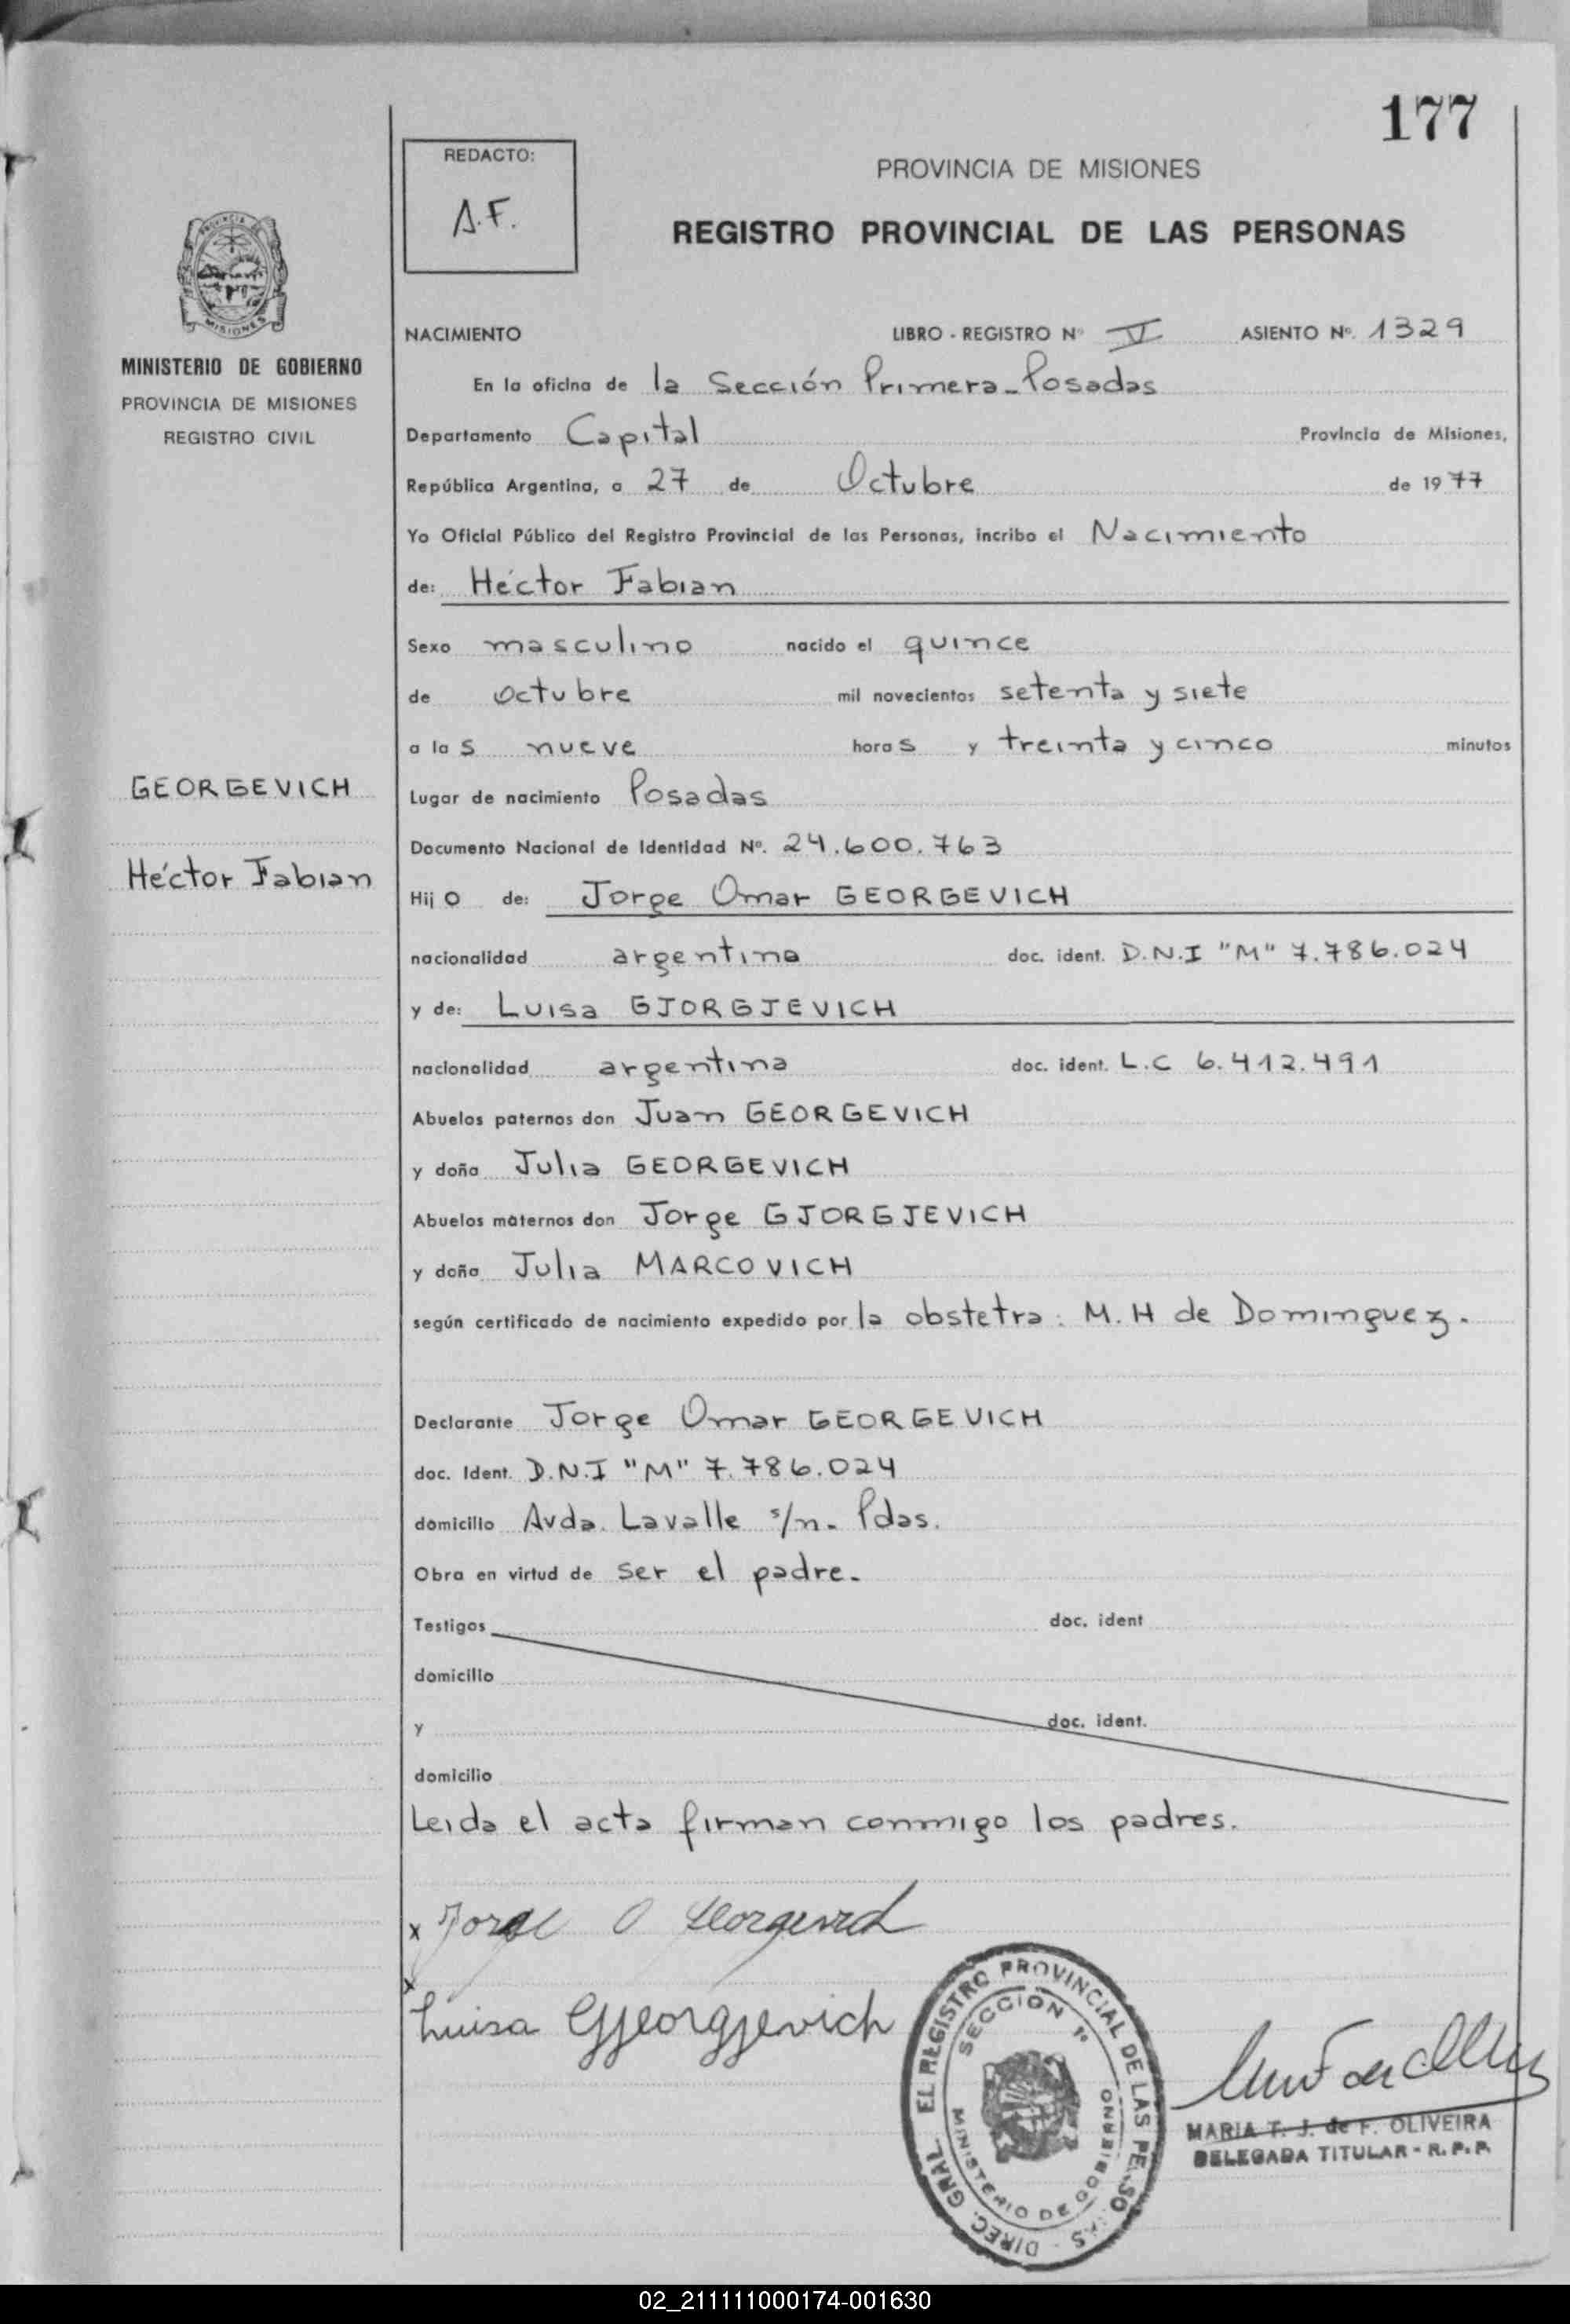 177
REDACTO:
A.F.
PROVINCIA DE MISIONES
REGISTRO PROVINCIAL DE LAS PERSONAS
PROVINCIA DE
MISIONES
MINISTERIO DE GOBIERNO
PROVINCIA DE MISIONES
REGISTRO CIVIL
NACIMIENTO LIBRO - REGISTRO Nº VI ASIENTO Nº. 1329
En la oficina de la Sección Primera - Posadas
Departamento Capital Provincia de Misiones,
República Argentina, a 27 de Octubre de 1977
Yo Oficial Público del Registro Provincial de las Personas, incribo el Nacimiento
de: Héctor Fabian
Sexo masculino nacido el quince
de octubre mil novecientos setenta y siete
a las nueve horas y treinta y cinco minutos
GEORGEVICH
Héctor Fabian
Lugar de nacimiento Posadas
Documento Nacional de Identidad Nº. 24.600.763
Hijo de: Jorge Omar GEORGEVICH
nacionalidad argentina doc. ident. D.N.I "M" 7.786.024
y de: Luisa GJORGJEVICH
nacionalidad argentina doc. ident. L.C 6.412.491
Abuelos paternos don Juan GEORGEVICH
y doña Julia GEORGEVICH
Abuelos maternos don Jorge GJORGJEVICH
y doña Julia MARCOVICH
según certificado de nacimiento expedido por la obstetra: M. H de Dominguez.
Declarante Jorge Omar GEORGEVICH
doc. Ident. D.N.I "M" 7.786.024
domicilio Avda. Lavalle s/n. Pdas.
Obra en virtud de ser el padre.
Testigos doc. ident
domicilio
y doc. ident.
domicilio
Leida el acta firman conmigo los padres.
x Jorge O Georgevich
x
Luisa Gjeorgjevich
DIREC. GRAL. EL REGISTRO PROVINCIAL DE LAS PERSONAS
SECCION 1º
MINISTERIO DE GOBIERNO
MARIA T. J. de F. OLIVEIRA
DELEGADA TITULAR - R. P. P.
02_211111000174-001630